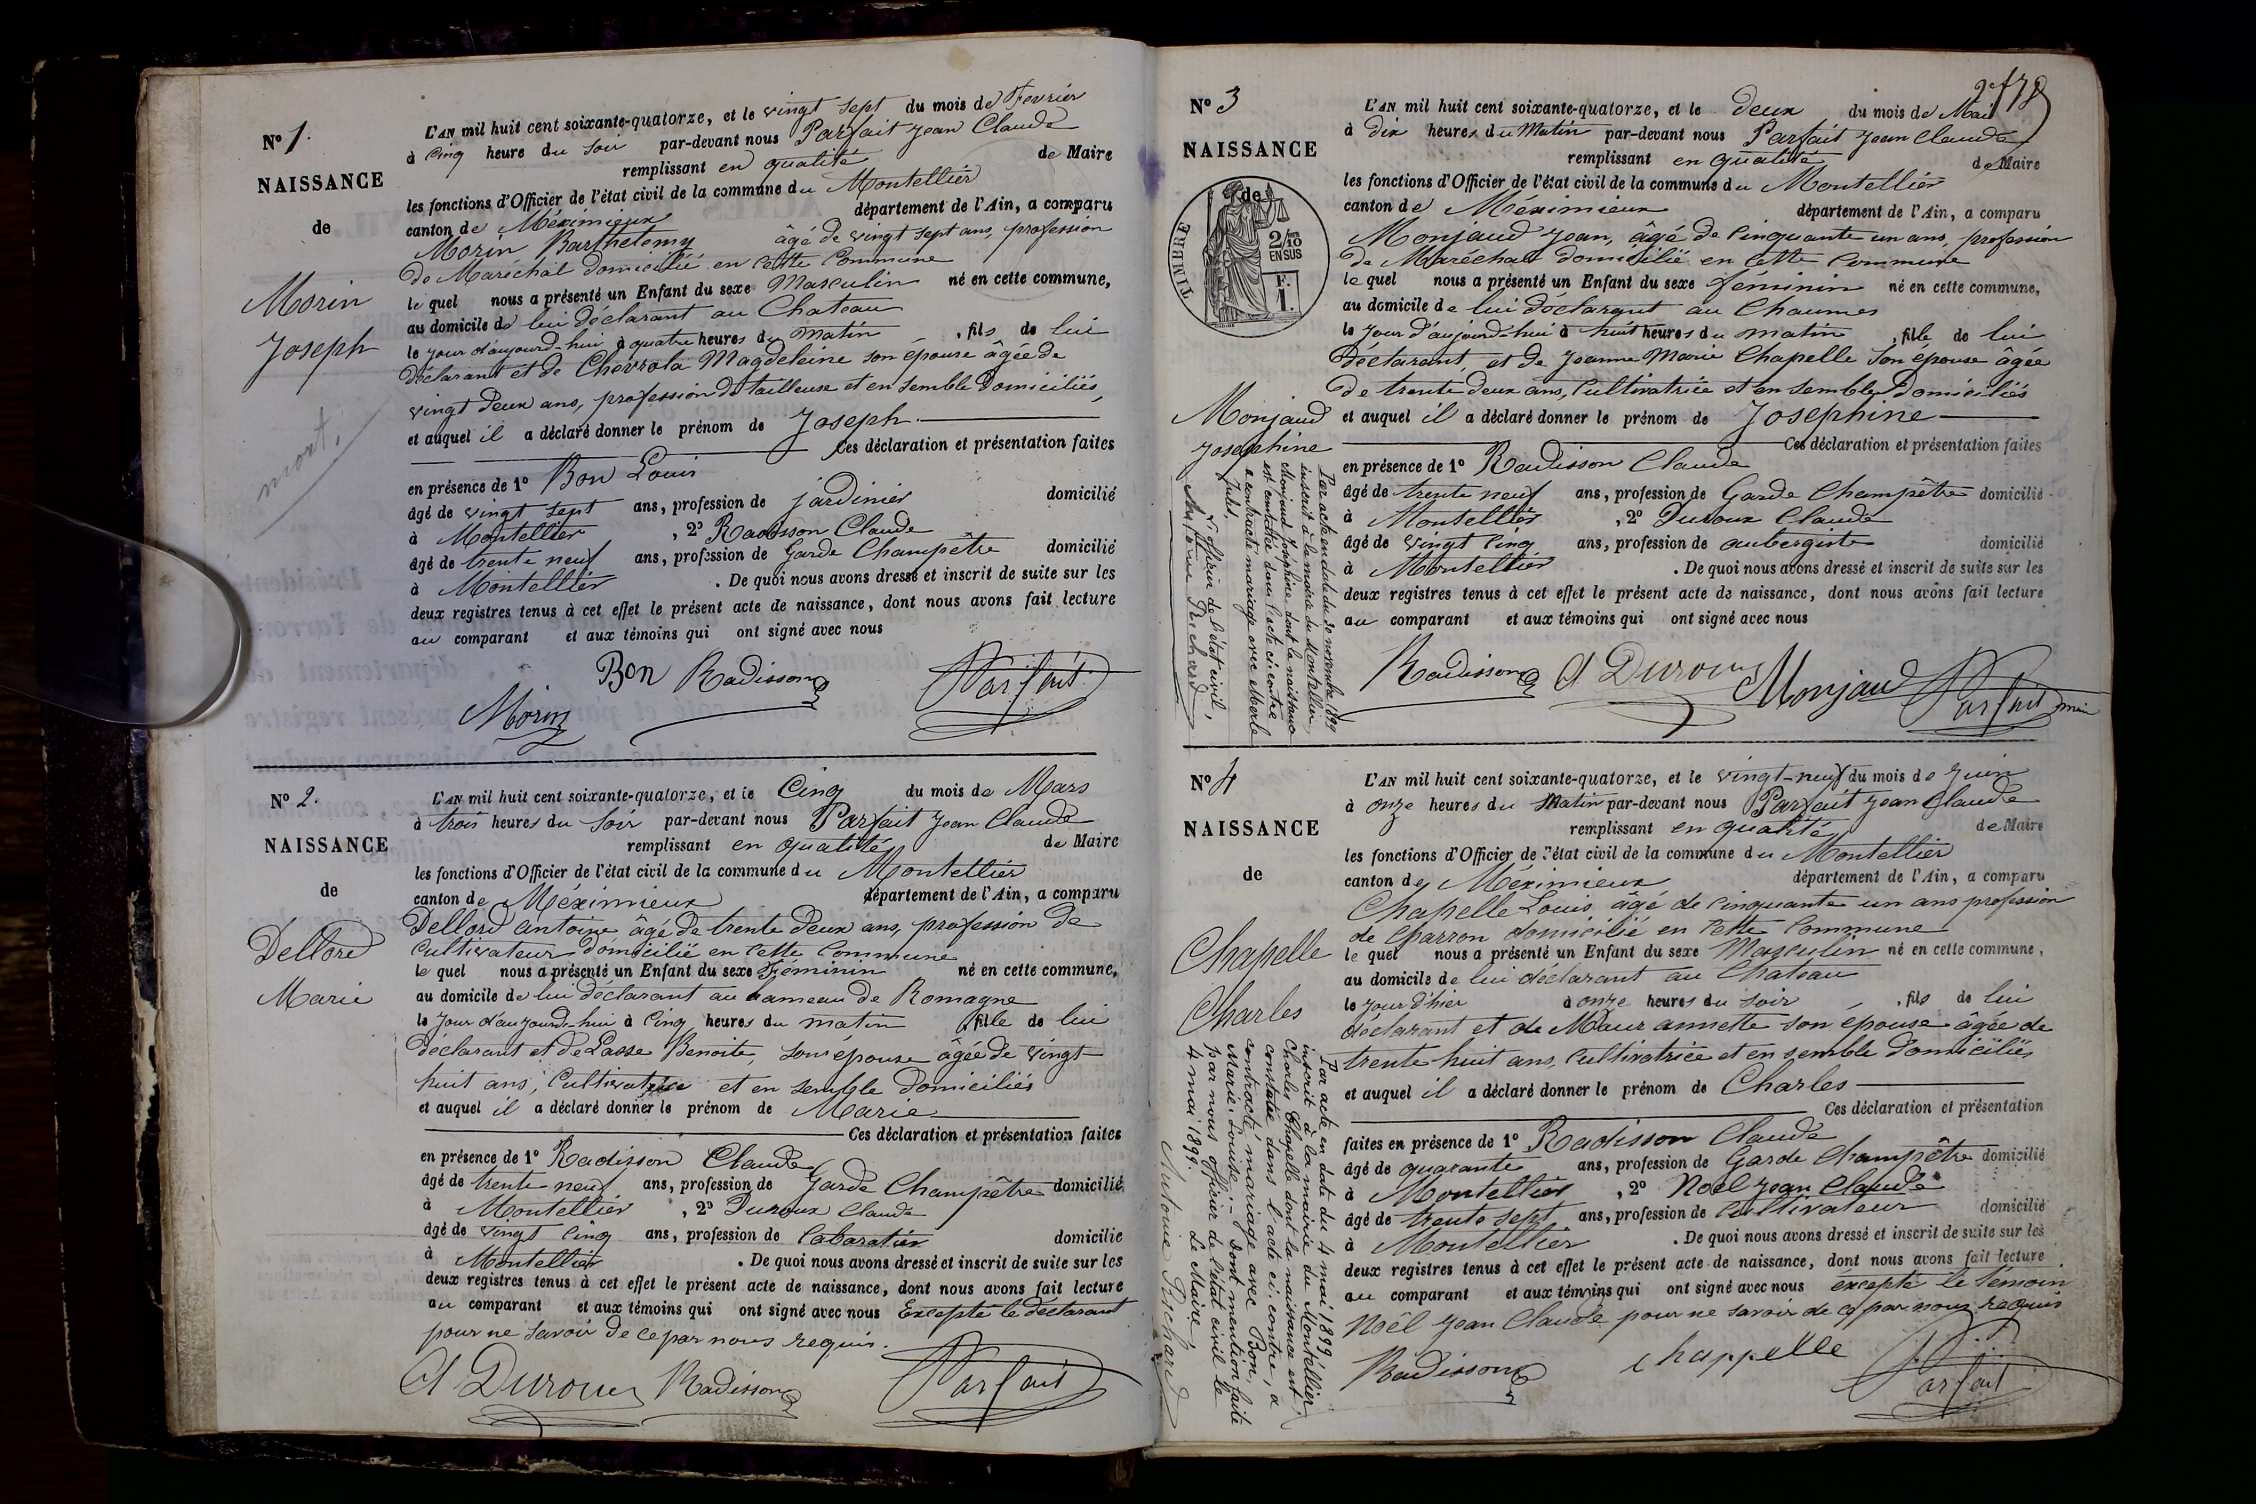 N° 1.
NAISSANCE
de
Morin
Joseph
mort.
L'AN mil huit cent soixante-quatorze, et le vingt sept du mois de Fevrier
à cinq heure du soir par-devant nous Parfait Jean Claude
remplissant en qualité de Maire
les fonctions d'Officier de l'état civil de la commune du Montellier
canton de Méximieux département de l'Ain, a comparu
Morin Barthelemy âgé de vingt sept ans, profession
de Maréchal domicilié en cette Commune
le quel nous a présenté un Enfant du sexe Masculin né en cette commune,
au domicile de lui déclarant au Chateau
le jour d'aujourd-hui à quatre heures du matin , fils de lui
déclarant et de Chevrola Magdeleine son épouse âgée de
vingt deux ans, profession de tailleuse et en semble domiciliés,
et auquel il a déclaré donner le prénom de Joseph.
Ces déclaration et présentation faites
en présence de 1° Bon Louis
âgé de vingt sept ans, profession de jardinier domicilié
à Montellier , 2° Radisson Claude
âgé de trente neuf ans, profession de Garde Champêtre domicilié
à Montellier . De quoi nous avons dressé et inscrit de suite sur les
deux registres tenus à cet effet le présent acte de naissance, dont nous avons fait lecture
au comparant et aux témoins qui ont signé avec nous
Bon Radisson Parfait
Morin
N° 2.
NAISSANCE
de
Dellord
Marie
L'AN mil huit cent soixante-quatorze, et le Cinq du mois de Mars
à trois heures du soir par-devant nous Parfait Jean Claude
remplissant en qualité de Maire
les fonctions d'Officier de l'état civil de la commune du Montellier
canton de Méximieux département de l'Ain, a comparu
Dellord antoine âgé de trente deux ans, profession de
cultivateur domicilié en cette commune
le quel nous a présenté un Enfant du sexe Féminin né en cette commune,
au domicile de lui déclarant au hameau de Romagne
le jour d'aujourd-hui à cinq heures du matin , fille de lui
déclarant et de Lasse Benoite, son épouse âgée de vingt
huit ans, Cultivatrice et en semble domiciliés
et auquel il a déclaré donner le prénom de Marie
Ces déclaration et présentation faites
en présence de 1° Radisson Claude
âgé de trente neuf ans, profession de Garde Champêtre domicilié
à Montellier , 2° Duroux Claude
âgé de vingt cinq ans, profession de Cabaratier domicilie
à Montellier . De quoi nous avons dressé et inscrit de suite sur les
deux registres tenus à cet effet le présent acte de naissance, dont nous avons fait lecture
au comparant et aux témoins qui ont signé avec nous Excepté le déclarant
pour ne savoir de ce par nous requis.
Cl Duroux Radisson Parfait
N° 3
NAISSANCE
de
TIMBRE
2/10
EN SUS
F.
1.
Monjaud
Josephine
L'AN mil huit cent soixante-quatorze, et le deux du mois de Mai
à dix heures du Matin par-devant nous Parfait Jean Claude
remplissant en qualité de Maire
les fonctions d'Officier de l'état civil de la commune du Montellier
canton de Méximieux département de l'Ain, a comparu
Monjaud Jean, âgé de cinquante un ans, profession
de Maréchal domicilié en cette commune
le quel nous a présenté un Enfant du sexe féminin né en cette commune,
au domicile de lui déclarant au Chaumes
le jour d'aujourd'hui à huit heures du matin , fille de lui
déclarant, et de Jeanne Marie Chapelle son épouse âgée
de trente deux ans, Cultivatrice et en semble domiciliés
et auquel il a déclaré donner le prénom de Josephine
Ces déclaration et présentation faites
en présence de 1° Radisson Claude
âgé de trente neuf ans, profession de Garde Champêtre domicilié
à Montellier , 2° Duroux Claude
âgé de vingt cinq ans, profession de aubergiste domicilié
à Montellier . De quoi nous avons dressé et inscrit de suite sur les
deux registres tenus à cet effet le présent acte de naissance, dont nous avons fait lecture
au comparant et aux témoins qui ont signé avec nous
Radisson Cl Duroux Monjaud Parfait
Par acte en date du 30 novembre 1899
inscrit à la mairie du Montellier,
Monjaud Joséphine dont la naissance
est constatée dans l'acte ci-contre
a contracté mariage avec Merle
Jules.
L'officier de l'état civil,
Antoine Pichard
N° 4
NAISSANCE
de
Chapelle
Charles
L'AN mil huit cent soixante-quatorze, et le vingt-neuf du mois de Juin
à onze heures du Matin par-devant nous Parfait Jean Claude
remplissant en qualité de Maire
les fonctions d'Officier de l'état civil de la commune du Montellier
canton de Méximieux département de l'Ain, a comparu
Chapelle Louis âgé de cinquante un ans profession
de charron domicilié en cette commune
le quel nous a présenté un Enfant du sexe Masculin né en cette commune,
au domicile de lui déclarant au Chateau
le jour d'hier à onze heures du soir , fils de lui
déclarant et de Maur annette son épouse âgée de
trente huit ans, Cultivatrice et en semble domiciliés
et auquel il a déclaré donner le prénom de Charles
Ces déclaration et présentation
faites en présence de 1° Radisson Claude
âgé de quarante ans, profession de Garde Champêtre domicilié
à Montellier , 2° Noël Jean Claude
âgé de trente sept ans, profession de Cultivateur domicilié
à Montellier . De quoi nous avons dressé et inscrit de suite sur les
deux registres tenus à cet effet le présent acte de naissance, dont nous avons fait lecture
au comparant et aux témoins qui ont signé avec nous excepté le témoin
Noël Jean Claude pour ne savoir de ce par nous requis
Radisson chappelle Parfait
Par acte en date du 4 mai 1899
inscrit à la mairie du Montellier
Charles Chapelle dont la naissance est
constatée dans l'acte ci-contre, a
contracté mariage avec Bon,
Marie-Louise. - Dont mention faite
par nous officier de l'état civil le
4 mai 1899. Le Maire
Antoine Pichard